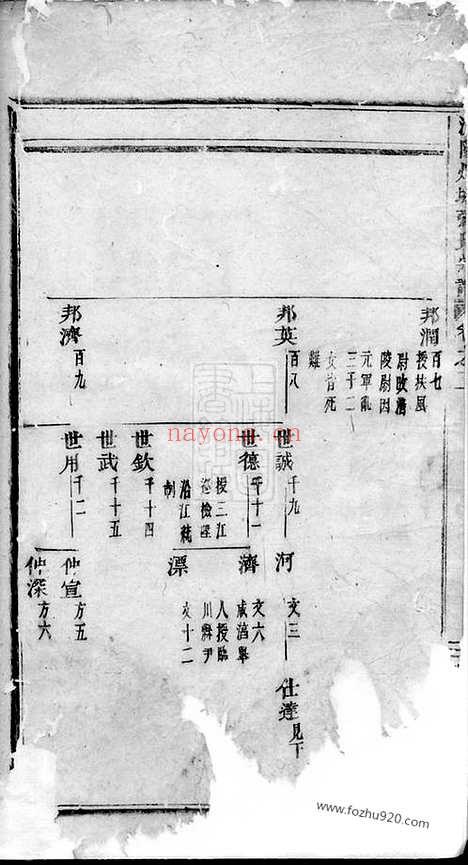 邦潤
百七
授扶風
尉改濟
陵尉因
元軍亂
三子二
女皆死
難
邦英
百八
世誠
千九
河
文三
仕達見下
世德
千十一
授三江
巡檢陞
沿江統
制
濟
文六
咸淳舉
人授臨
川縣尹
漂
文十二
世欽
千十四
世武
千十五
邦濟
百九
世用
千二
仲宣
方五
仲深
方六
nayona.cn
www.fozhu920.com